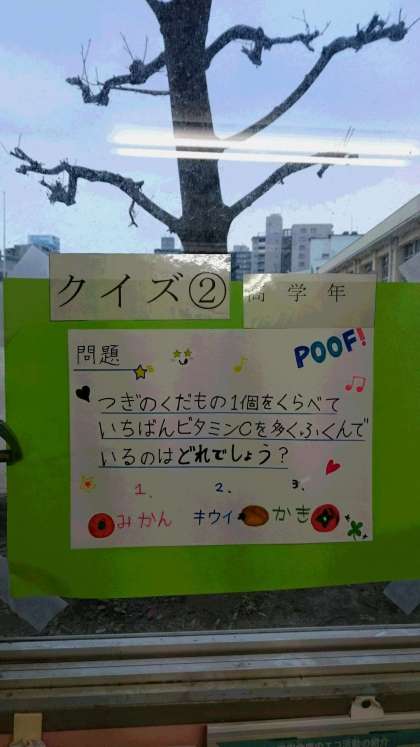 クイズ②
高学年
問題
POOF!
つぎのくだもの1個をくらべて
いちばんビタミンCを多くふくんで
いるのはどれでしょう?
1. 2. 3.
みかん キウイ かき